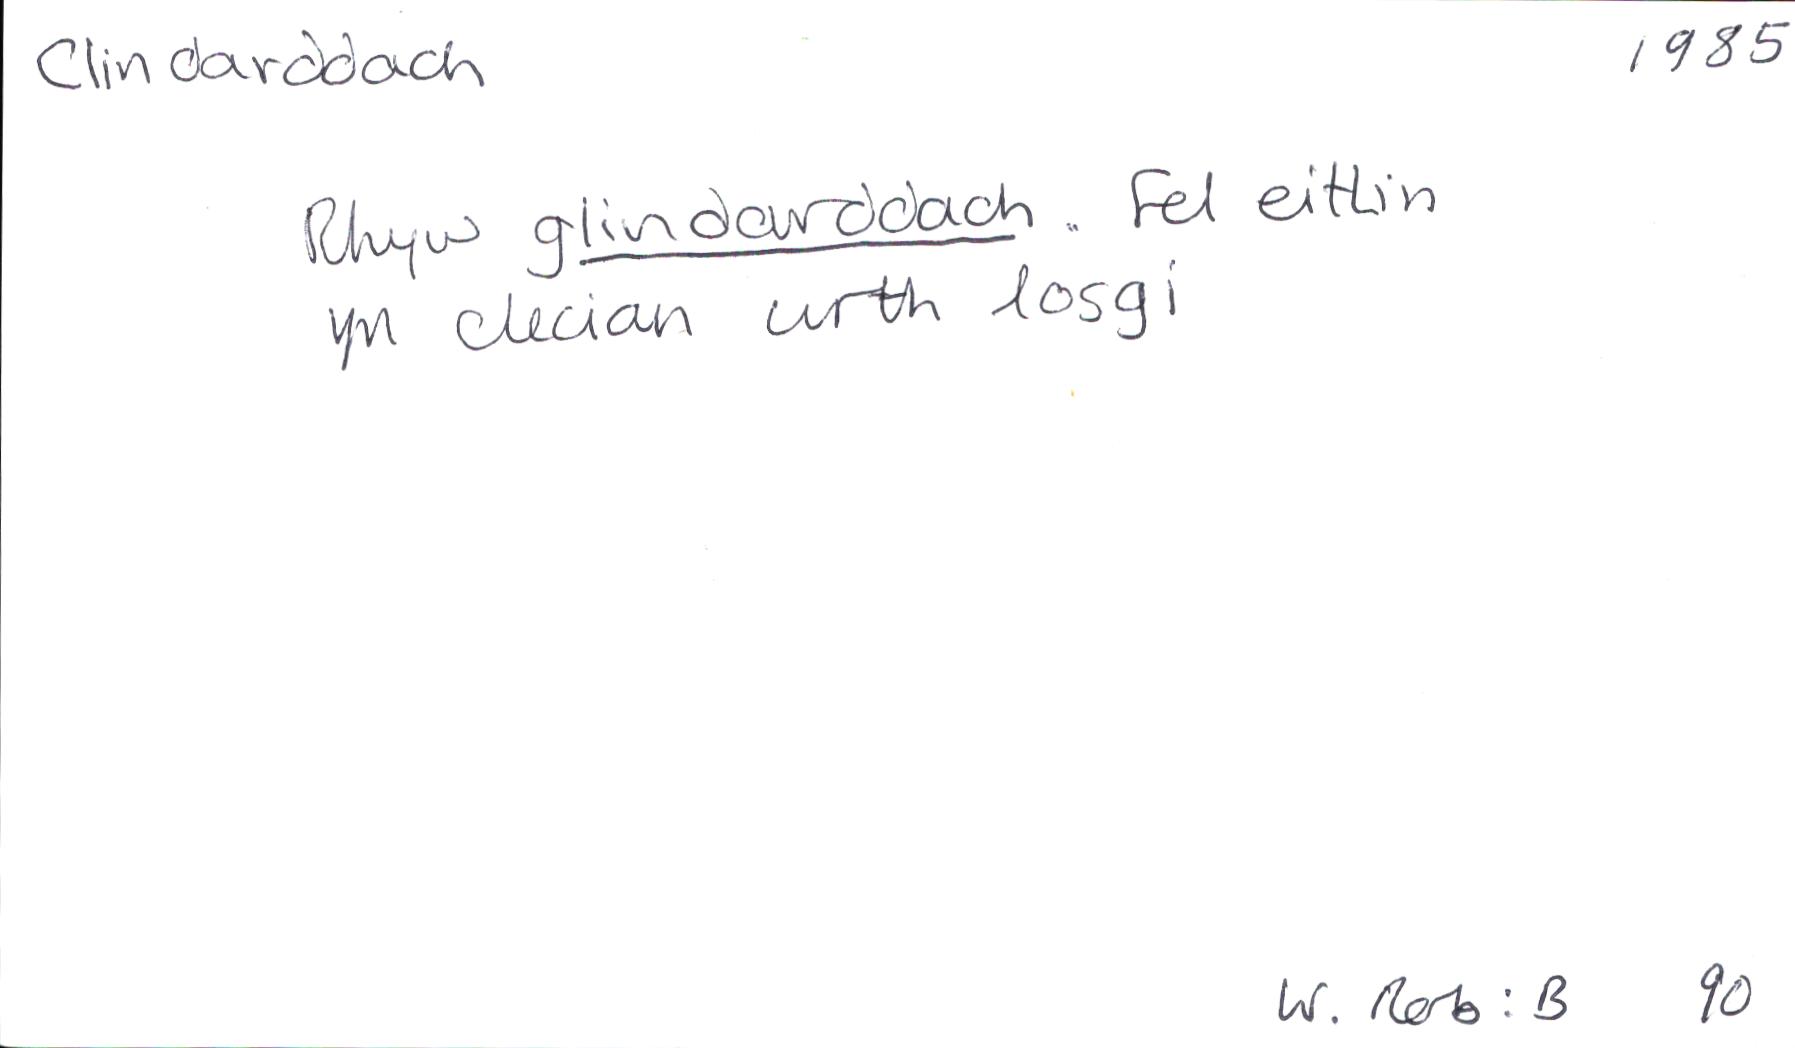 Clindarddach 1985
Rhyw glindarddach. Fel eithin
yn clecian wrth losgi
W. Rob: B 90